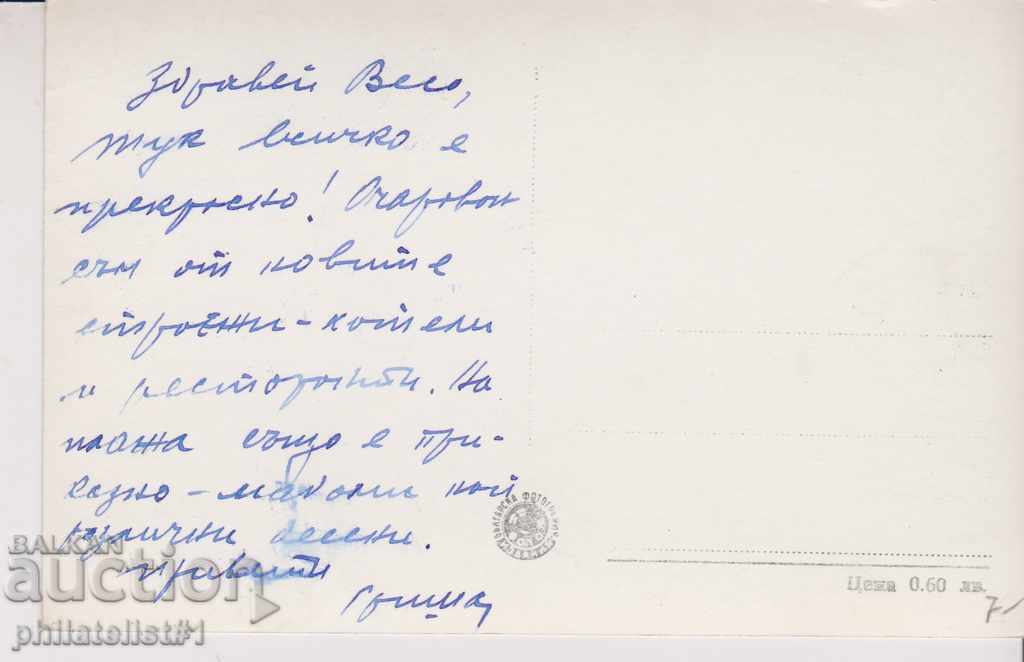 Здравей Весо,
тук всичко е
прекрасно! Очарован
съм от новите
строежи - хотели
и ресторанти. На
плажа също е при-
казно -
различни
привети
Гриша
БЪЛГАРСКА ФОТОГРАФИЯ
Цена 0.60 лв.
7
BALKAN
auction
philatelist#1